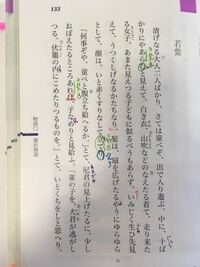 133
若紫
清げなる大人二人ばかり、さては童べぞ、出で入り遊ぶ。中に、十ば
かりにやあらむと見えて、白き衣、山吹などのなえたる着て、走り来た
る女子、あまた見えつる子どもに似るべうもあらず、いみじく生ひ先見
えて、うつくしげなるかたちなり。髪は、扇を広げたるやうにゆらゆら
として、顔は、いと赤くすりなして立てり。
「何事ぞや。童べと腹立ち給へるか。」とて、尼君の見上げたるに、少し
おぼえたるところあれば、子なめりと見給ふ。「雀の子を、犬君が逃がし
つる。伏籠の内にこめたりつるものを。」とて、いとくちをしと思へり。
物語
源氏物語